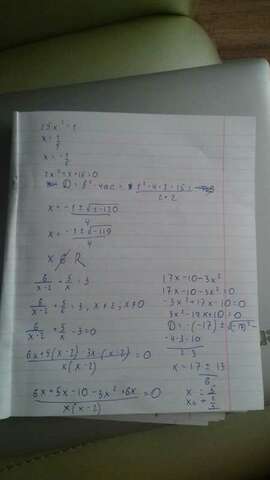 25x² = 1
x = 1/5
x = -1/5
2x² + x + 15 = 0
D = b² - 4ac =
x = (-1 ± √(1-120))/4
x = (-1 ± √(-119))/4
x ∉ R
6/(x-2) + 5/x = 3
6/(x-2) + 5/x = 3, x ≠ 2, x ≠ 0
6/(x-2) + 5/x - 3 = 0
(6x + 5(x-2) - 3x·(x-2))/(x(x-2)) = 0
(6x + 5x - 10 - 3x² + 6x)/(x(x-2)) = 0
17x - 10 - 3x²
17x - 10 - 3x² = 0
-3x² + 17x - 10 = 0
3x² - 17x + 10 = 0
-4·3·10
x = (17 ± 13)/6